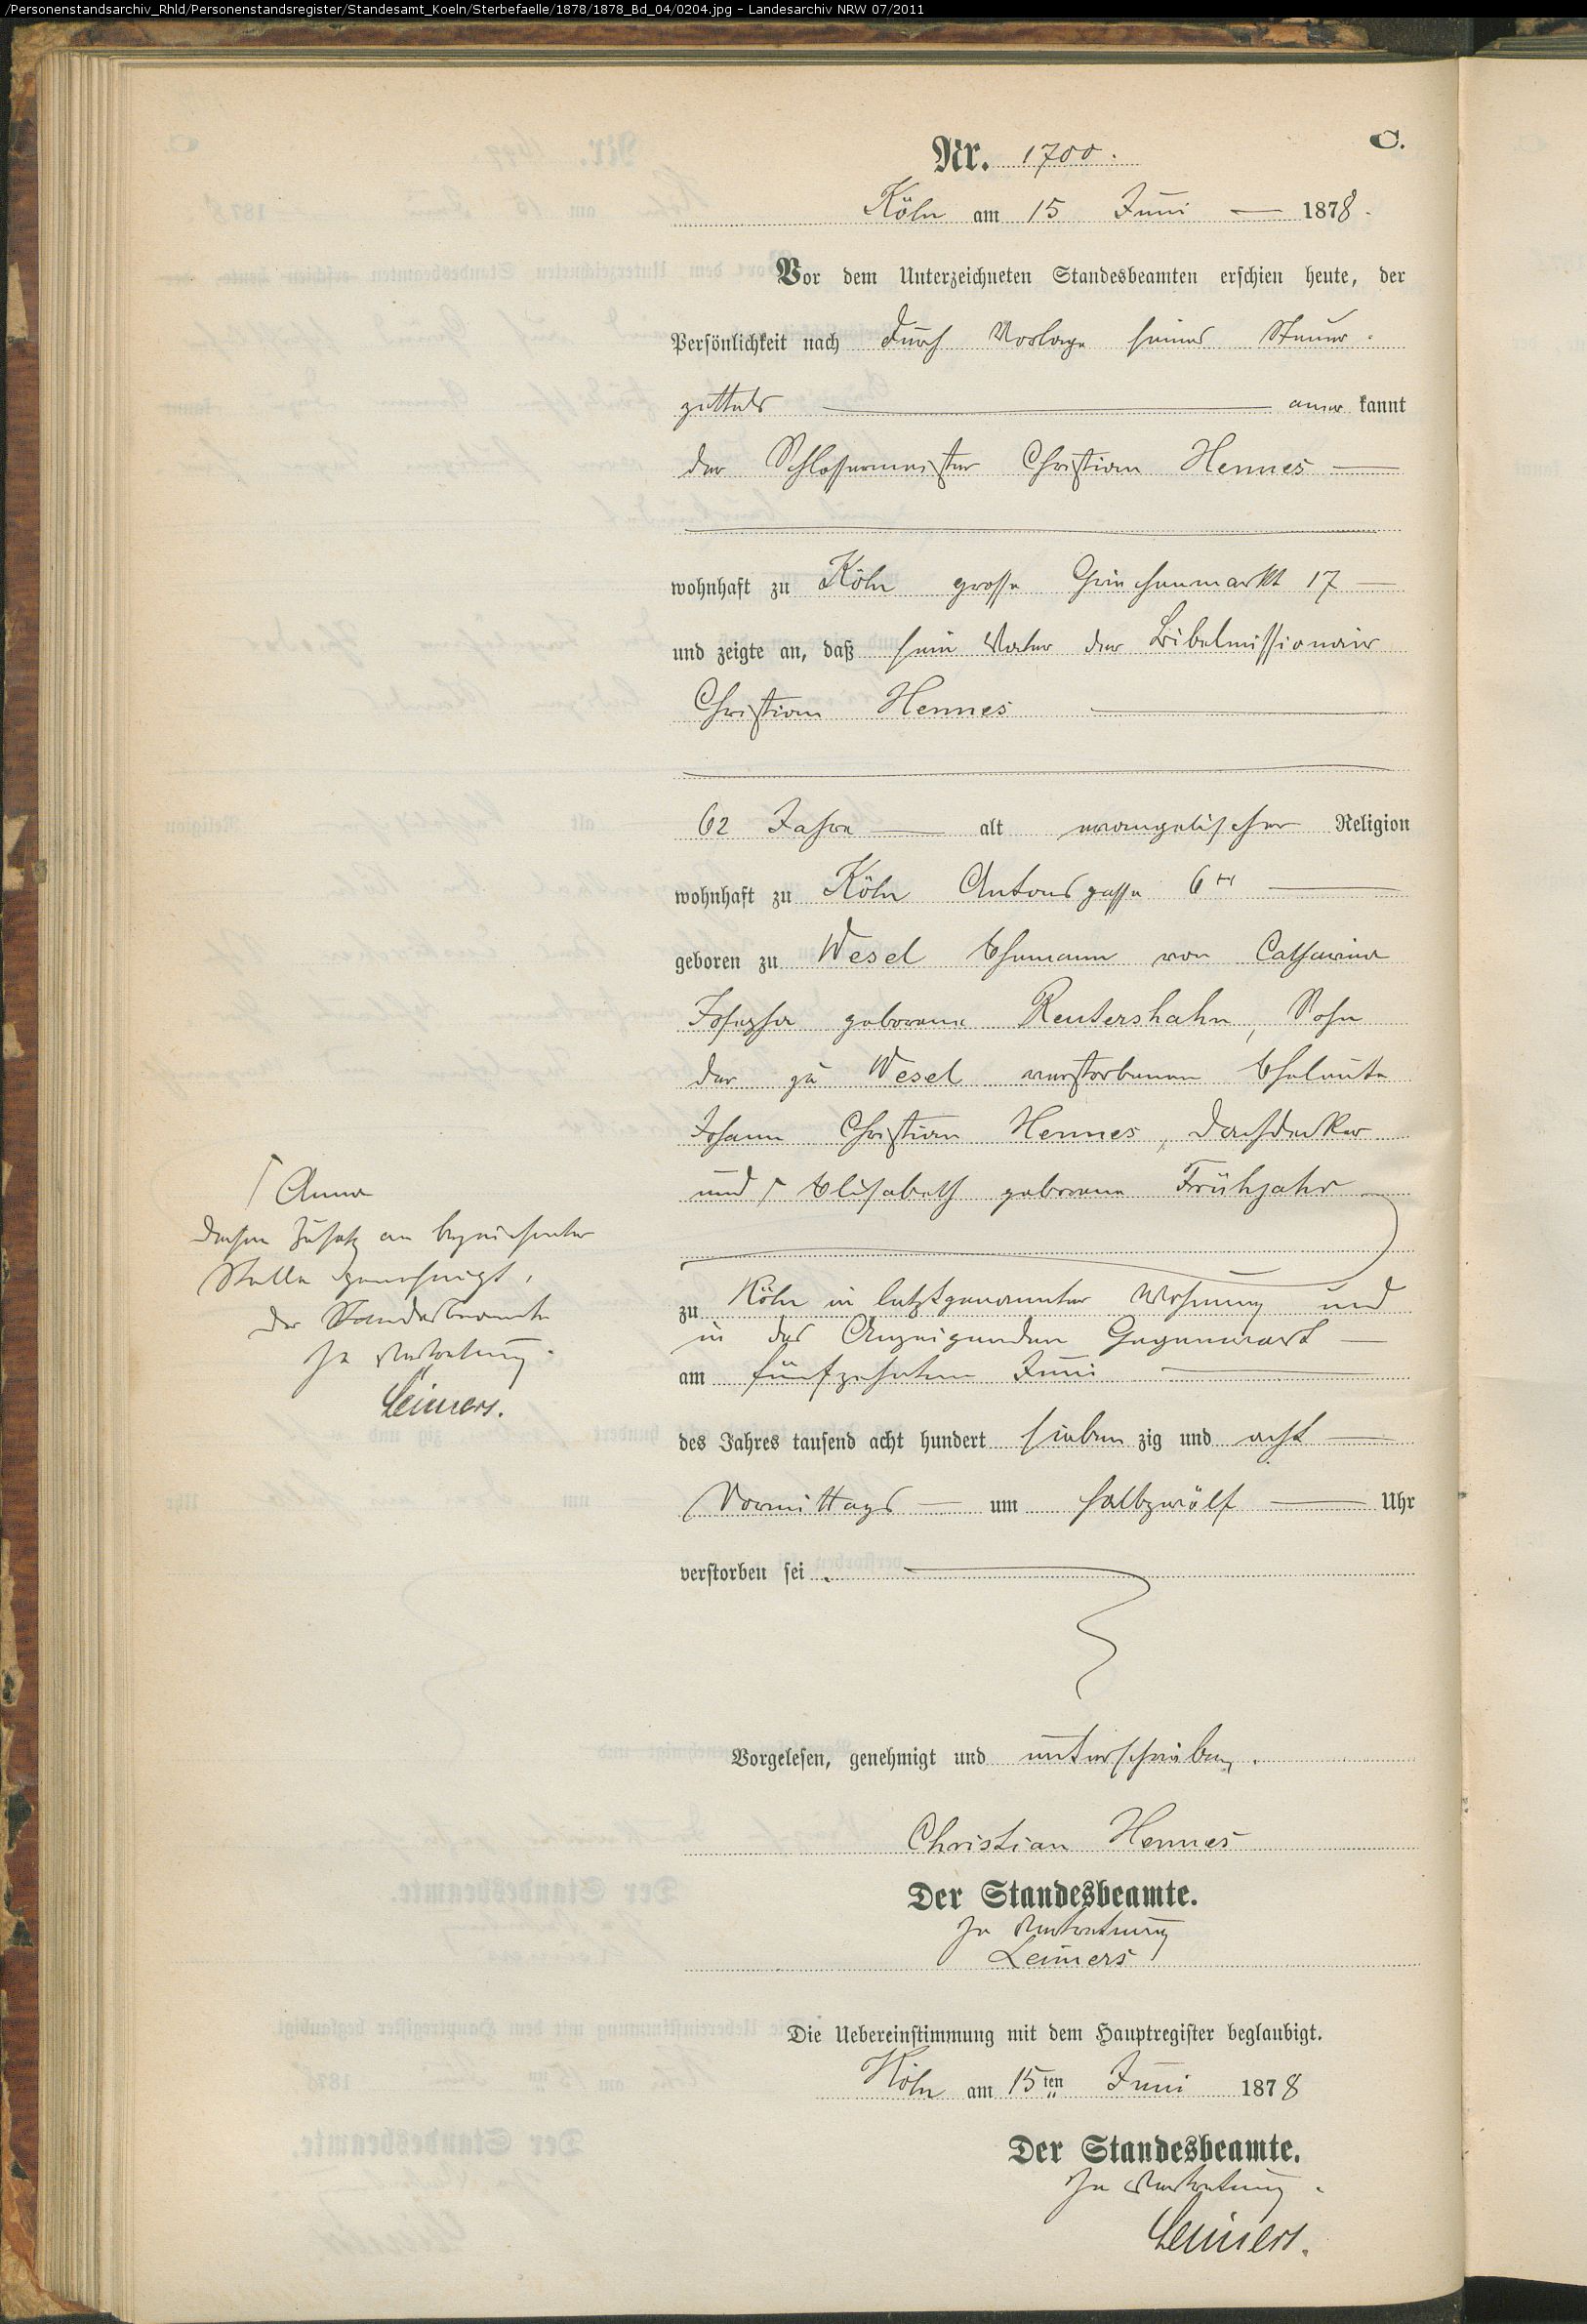 /Personenstandsarchiv_Rhld/Personenstandsregister/Standesamt_Koeln/Sterbefaelle/1878/1878_Bd_04/0204.jpg - Landesarchiv NRW 07/2011
C.
Nr. 1700.
Köln am 15 Juni 1878.
Vor dem Unterzeichneten Standesbeamten erschien heute, der
Persönlichkeit nach durch Vorlage seines Steuer-
zettels aner kannt
der Schlossermeister Christian Hennes
wohnhaft zu Köln grosse Griechenmarkt 17
und zeigte an, daß sein Vater der Bibelmissionair
Christian Hennes
62 Jahre alt evangelischer Religion
wohnhaft zu Köln Antonsgasse 6
geboren zu Wesel Ehemann von Catharina
Josepha geborene Reutershahn, Sohn
der zu Wesel verstorbenen Eheleute
Johann Christian Hennes, Dachdecker
und ⌈ Elisabeth geborene Frühjahr
⌈ Anna
diesen Zusatz an bezeichneter
Stelle genehmigt,
Der Standesbeamte
In Vertretung.
Leimers.
zu Köln in letztgenannter Wohnung und
in des Anzeigenden Gegenwart
am fünfzehnten Juni
des Jahres tausend acht hundert sieben zig und acht
Vormittags um halbzwölf Uhr
verstorben sei.
Vorgelesen, genehmigt und unterschrieben.
Christian Hennes
Der Standesbeamte.
In Vertretung
Leimers
Die Uebereinstimmung mit dem Hauptregister beglaubigt.
Köln am 15ten Juni 1878
Der Standesbeamte.
In Vertretung.
Leimers.